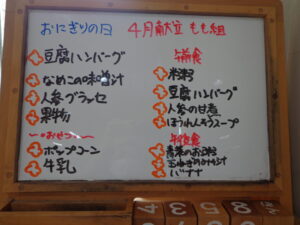 おにぎりの日 4月献立 もも組
豆腐ハンバーグ
なめこの味噌汁
人参グラッセ
果物
〜おやつ〜
ポップコーン
牛乳
午前食
米粥
豆腐ハンバーグ
人参の甘煮
ほうれんそうスープ
午後食
青菜のお粥
玉ねぎの味噌汁
バナナ